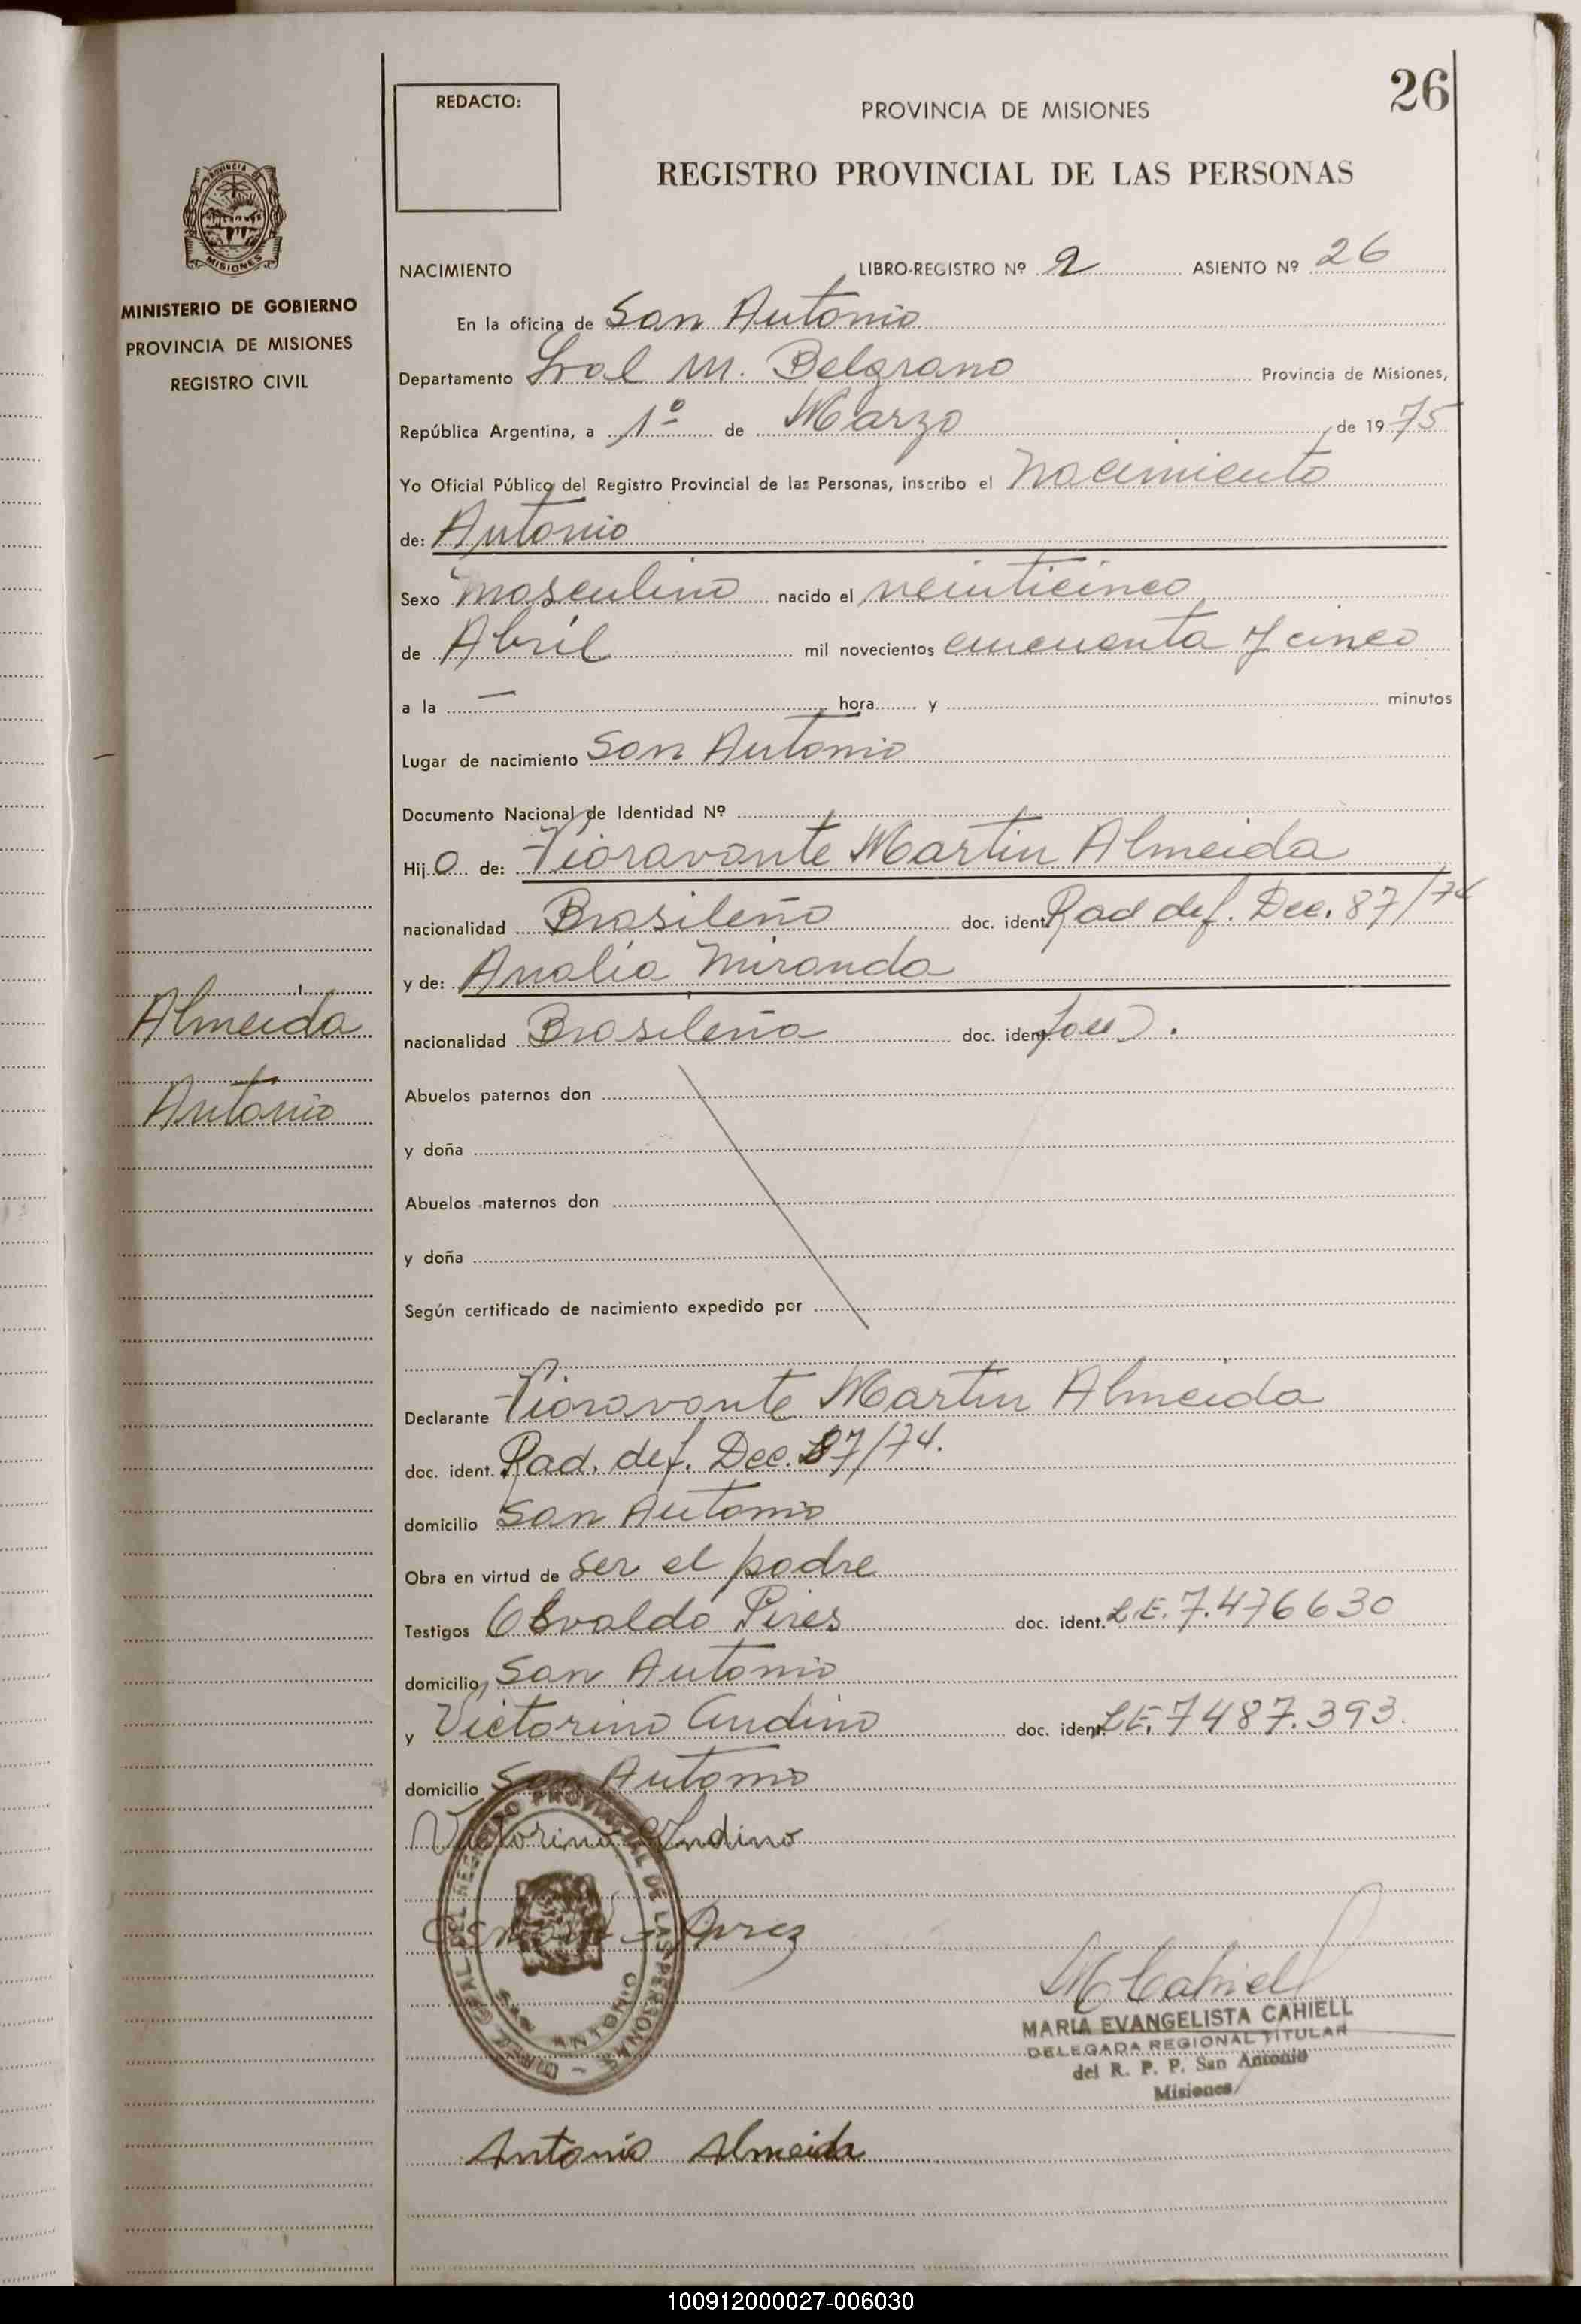 26
REDACTO:
PROVINCIA DE MISIONES
REGISTRO PROVINCIAL DE LAS PERSONAS
PROVINCIA DE
MISIONES
MINISTERIO DE GOBIERNO
PROVINCIA DE MISIONES
REGISTRO CIVIL
NACIMIENTO LIBRO-REGISTRO Nº 2 ASIENTO Nº 26
En la oficina de San Antonio
Departamento Gral M. Belgrano Provincia de Misiones,
República Argentina, a 1º de Marzo de 1975
Yo Oficial Público del Registro Provincial de las Personas, inscribo el nacimiento
de: Antonio
Sexo masculino nacido el veinticinco
de Abril mil novecientos cincuenta y cinco
a la — hora y minutos
Lugar de nacimiento San Antonio
Documento Nacional de Identidad Nº
Hijo de: Fioravante Martin Almeida
nacionalidad Brasileño doc. ident. Rad def. Dec. 87/74
y de: Analia Miranda
nacionalidad Brasileña doc. ident.
Almeida
Antonio
Abuelos paternos don
y doña
Abuelos maternos don
y doña
Según certificado de nacimiento expedido por
Declarante Fioravante Martin Almeida
doc. ident. Rad. def. Dec. 87/74.
domicilio San Antonio
Obra en virtud de ser el padre
Testigos Osvaldo Pires doc. ident. L.E. 7.476630
domicilio San Antonio
y Victorino Andino doc. ident. L.E. 7487.393.
domicilio San Antonio
Victorino Andino
Perez
REGISTRO PROVINCIAL DE LAS PERSONAS
SAN ANTONIO
M Cahiell
MARIA EVANGELISTA CAHIELL
DELEGADA REGIONAL TITULAR
del R. P. P. San Antonio
Misiones
Antonio Almeida
100912000027-006030